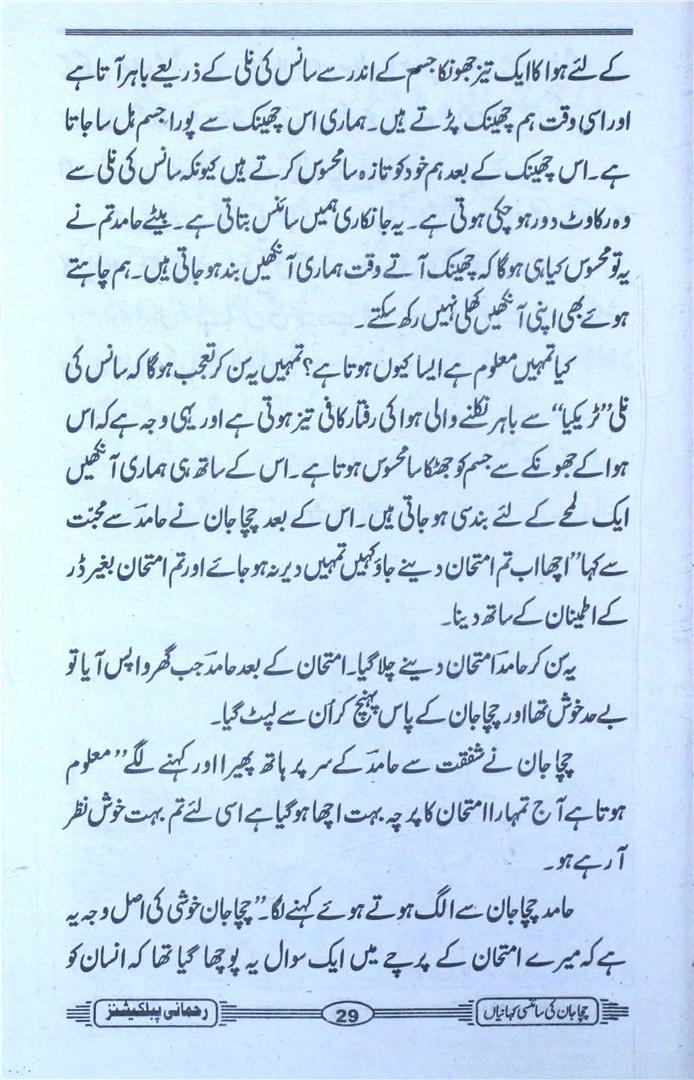 کے لئے ہوا کا ایک تیز جھونکا جسم کے اندر سے سانس کی نلی کے ذریعے باہر آتا ہے
اور اسی وقت ہم چھینک پڑتے ہیں۔ ہماری اس چھینک سے پورا جسم ہل سا جاتا
ہے۔ اس چھینک کے بعد ہم خود کو تازہ سا محسوس کرتے ہیں کیونکہ سانس کی نلی سے
وہ رکاوٹ دور ہو چکی ہوتی ہے۔ یہ جانکاری ہمیں سائنس بتاتی ہے۔ بیٹے حامد تم نے
یہ تو محسوس کیا ہی ہوگا کہ چھینک آتے وقت ہماری آنکھیں بند ہو جاتی ہیں۔ ہم چاہتے
ہوئے بھی اپنی آنکھیں کھلی نہیں رکھ سکتے۔
کیا تمہیں معلوم ہے ایسا کیوں ہوتا ہے؟ تمہیں یہ سن کر تعجب ہوگا کہ سانس کی
نلی ”ٹریکیا“ سے باہر نکلنے والی ہوا کی رفتار کافی تیز ہوتی ہے اور یہی وجہ ہے کہ اس
ہوا کے جھونکے سے جسم کو جھٹکا سا محسوس ہوتا ہے۔ اس کے ساتھ ہی ہماری آنکھیں
ایک لمحے کے لئے بند سی ہو جاتی ہیں۔ اس کے بعد چچا جان نے حامدؔ سے محبّت
سے کہا ”اچھا اب تم امتحان دینے جاؤ کہیں تمہیں دیر نہ ہو جائے اور تم امتحان بغیر ڈر
کے اطمینان کے ساتھ دینا۔
یہ سن کر حامدؔ امتحان دینے چلا گیا۔ امتحان کے بعد حامدؔ جب گھر واپس آیا تو
بے حد خوش تھا اور چچا جان کے پاس پہنچ کر اُن سے لپٹ گیا۔
چچا جان نے شفقت سے حامدؔ کے سر پر ہاتھ پھیرا اور کہنے لگے ”معلوم
ہوتا ہے آج تمہارا امتحان کا پرچہ بہت اچھا ہو گیا ہے اسی لئے تم بہت خوش نظر
آرہے ہو۔
حامد چچا جان سے الگ ہوتے ہوئے کہنے لگا۔ ”چچا جان خوشی کی اصل وجہ یہ
ہے کہ میرے امتحان کے پرچے میں ایک سوال یہ پوچھا گیا تھا کہ انسان کو
چچا جان کی سائنسی کہانیاں 29 رحمانی پبلکیشنز